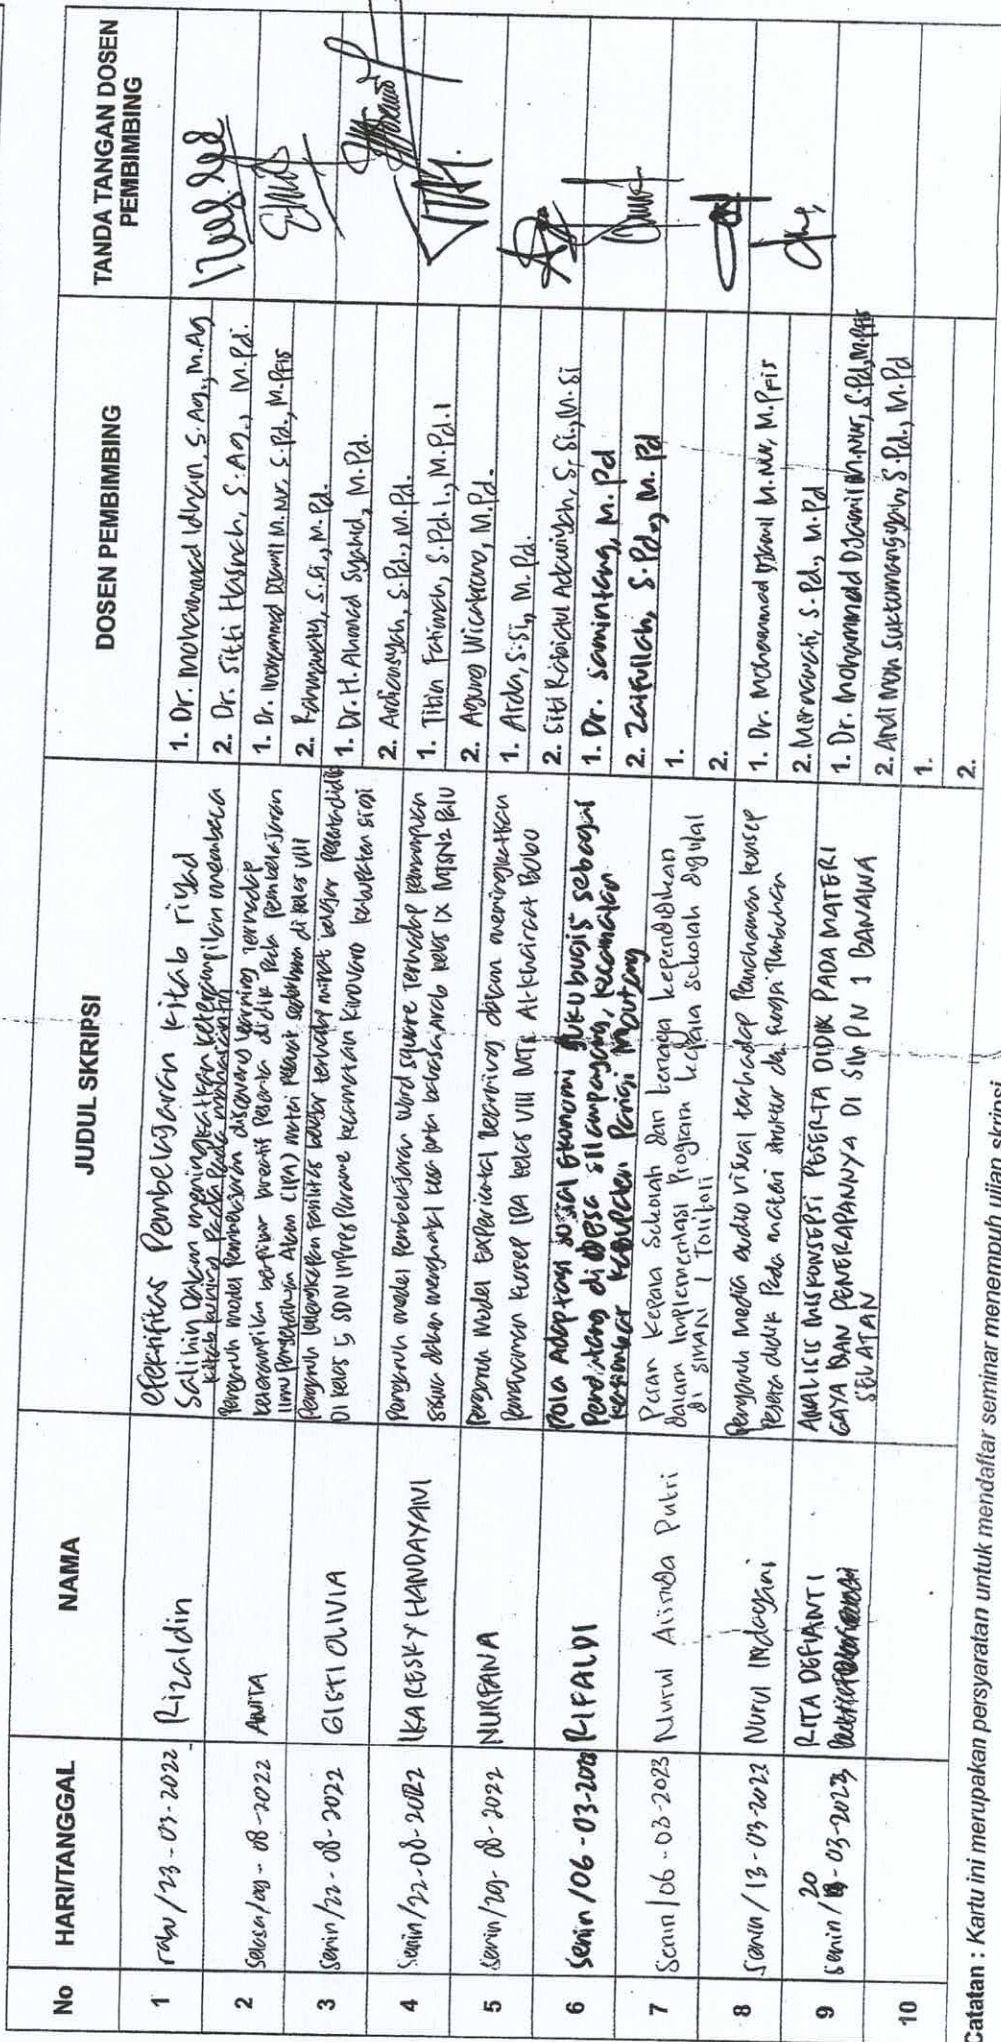 No HARI/TANGGAL NAMA JUDUL SKRIPSI DOSEN PEMBIMBING TANDA TANGAN DOSEN PEMBIMBING
1 rabu/23-03-2022 Rizaldin
Efektifitas Pembelajaran kitab riyad
Salihin Dalam meningkatkan keterampilan membaca
kitab kuning Pada
1. Dr. Mohammad Idhan, S.Ag., M.Ag
2. Dr. Sitti Hasnah, S.Ag., M.Pd.
2 Selasa/09-08-2022 ANITA
Pengaruh model Pembelajaran discovery learning terhadap
keterampilan berpikir kreatif Peserta didik Pada Pembelajaran
Ilmu Pengetahuan Alam (IPA) materi Pesawat sederhana di kelas VIII
1. Dr. Mohammad Djamil M.Nur, S.Pd., M.PFis
2. S.Si., M.Pd.
3 Senin/22-08-2022 GISTI OLIVIA
Pengaruh kelengkapan fasilitas belajar terhadap minat belajar Peserta didik
Di kelas 5 SDN Inpres kecamatan Kinovaro kabupaten sigi
1. Dr. H. Ahmad Syahid, M.Pd.
2. Ardiansyah, S.Pd., M.Pd.
4 Senin/22-08-2022 IKA RESKY HANDAYANI
Pengaruh model Pembelajaran word square Terhadap kemampuan
siswa dalam menghafal kosa kata bahasa arab kelas IX MTsN 2 Palu
1. Titin Fatimah, S.Pd.I., M.Pd.I
2. Agung Wicaksono, M.Pd.
5 Senin/29-08-2022 NURFANA
Pengaruh Model Experiental learning dalam meningkatkan
Pemahaman Konsep IPA kelas VIII MTs Al-khairaat Bobo
1. Arda, S.Si, M.Pd.
2. Siti Rabiatul Adawiyah, S.Si., M.Si
6 Senin/06-03-2023 RIFALDI
Pola Adaptasi sosial Ekonomi suku bugis sebagai
Pendatang di Desa silampayang, kecamatan
kasimbar kabupaten Parigi Moutong
1. Dr. Samintang, M.Pd
2. Zaifullah, S.Pd., M.Pd
7 Senin/06-03-2023 Nurul Alinda Putri
Peran Kepala Sekolah dan tenaga kependidikan
dalam Implementasi Program kepala sekolah digital
di SMAN 1 Tolitoli
1.
2.
8 Senin/13-03-2023 Nurul Indagini
Pengaruh Media audio visual terhadap Pemahaman konsep
Peserta didik Pada materi struktur dan fungsi Tumbuhan
1. Dr. Mohammad Djamil M.Nur, M.PFis
2. Mernawati, S.Pd., M.Pd
9 Senin/20-03-2023 RITA DEFIANTI
ANALISIS MISKONSEPSI PESERTA DIDIK PADA MATERI
GAYA DAN PENERAPANNYA DI SMPN 1 BANAWA
SELATAN
1. Dr. Mohammad Djamil M.Nur, S.Pd, M.PFis
2. Andi S.Pd., M.Pd
10
1.
2.
Catatan : Kartu ini merupakan persyaratan untuk mendaftar seminar menempuh ujian skripsi